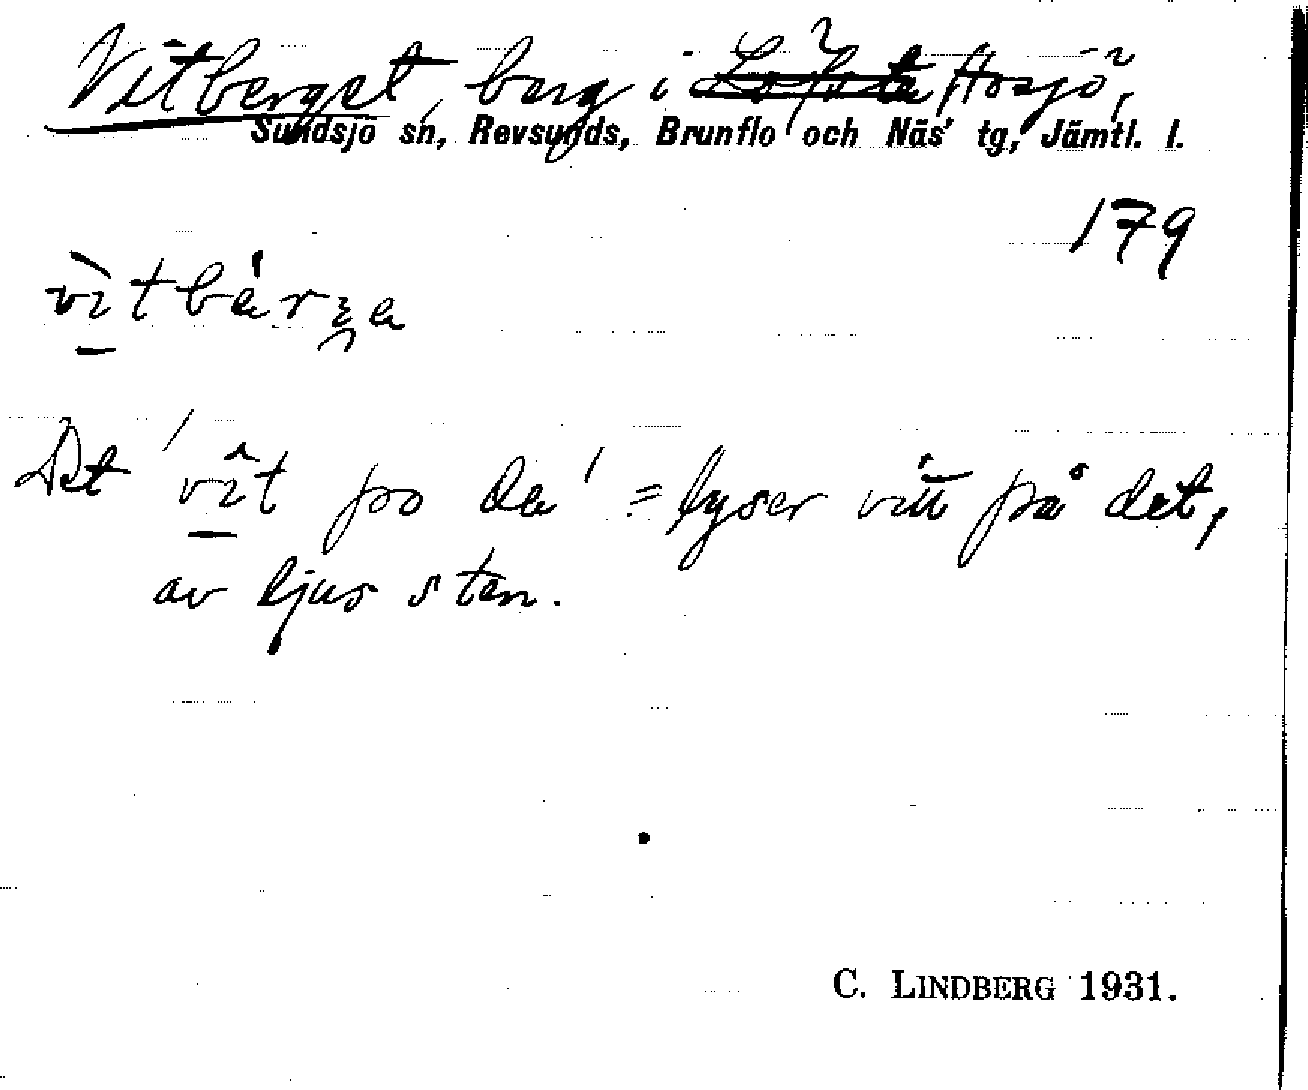 Vitberget, berg i Hosjö,
Sundsjö sn, Revsunds, Brunflo och Näs' tg, Jämtl. l.
179
vìtbár̥a
Det 'vît po de' = lyser vitt på det,
av ljus sten.
C. LINDBERG 1931.